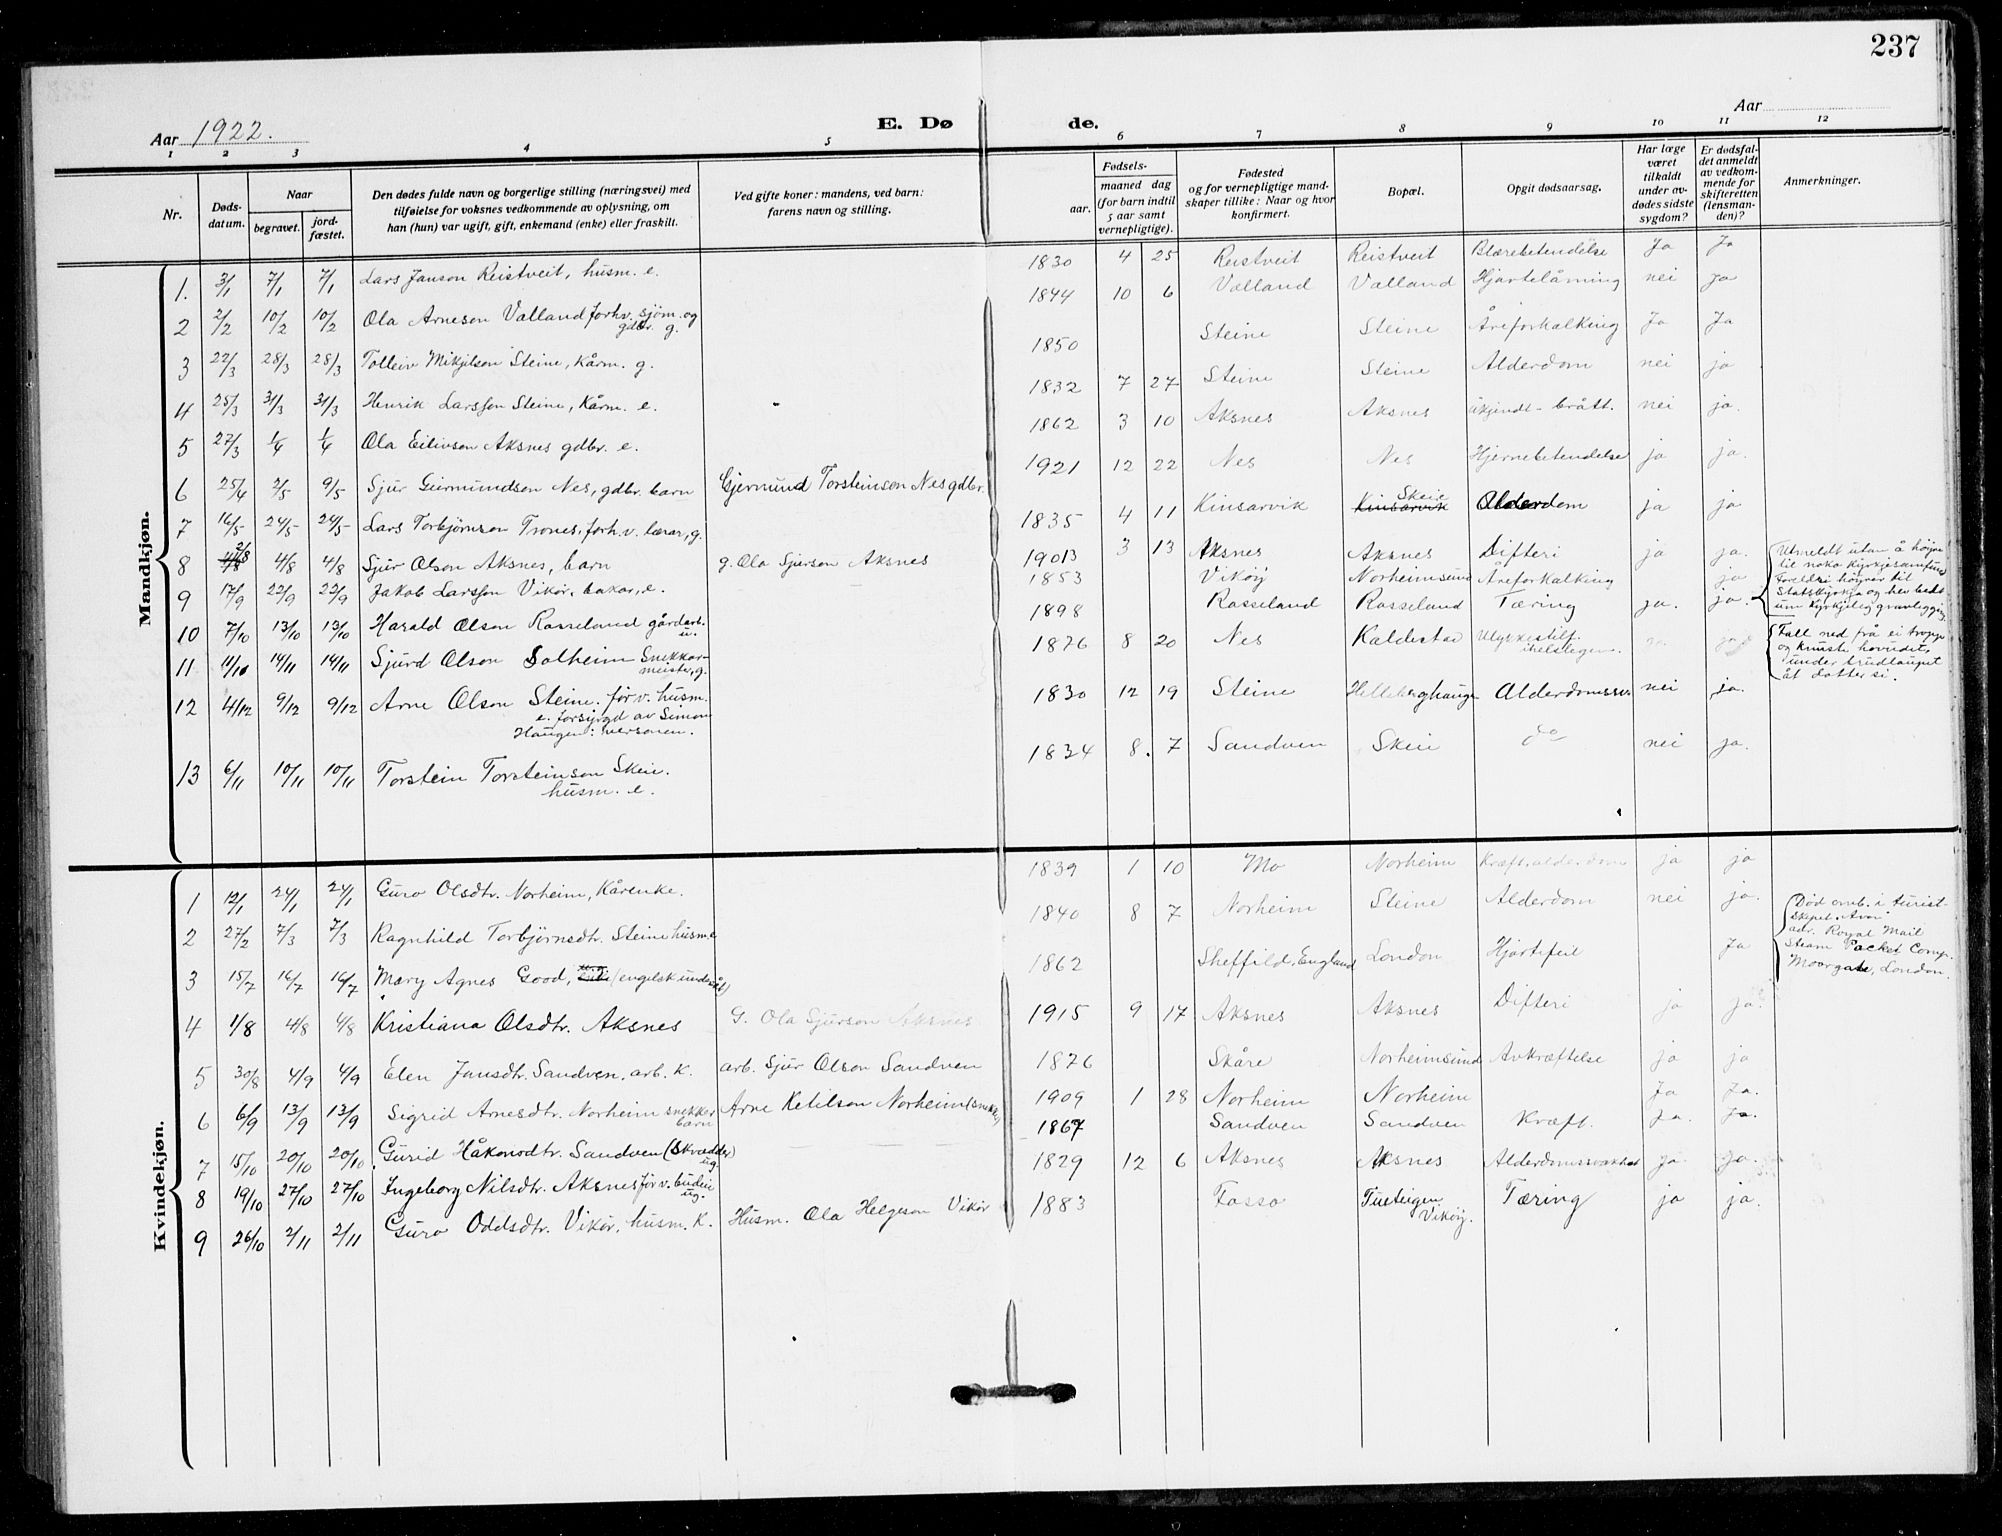 237
Aar 1922.
E. Døde.
Aar
1 2 3 4 5 6 7 8 9 10 11 12
Nr.
Døds-datum.
Naar
begravet.
jord-fæstet.
Den dødes fulde navn og borgerlige stilling (næringsvei) med
tilføielse for voksnes vedkommende av oplysning, om
han (hun) var ugift, gift, enkemand (enke) eller fraskilt.
Ved gifte koner: mandens, ved barn:
farens navn og stilling.
Fødsels-
aar.
maaned dag
(for barn indtil
5 aar samt
vernepligtige).
Fødested
og for vernepligtige mand-
skaper tillike: Naar og hvor
konfirmert.
Bopæl.
Opgit dødsaarsag.
Har læge
været
tilkaldt
under av-
dødes sidste
sygdom?
Er dødsfal-
det anmeldt
av vedkom-
mende for
skifteretten
(lensman-
den)?
Anmerkninger.
Mandkjøn.
1. 3/1 7/1 7/1 Lars Janson Reistveit, husm. e. 1830 4 25 Reistveit Reistveit Blærebetendelse Ja Ja
2 2/2 10/2 10/2 Ola Arneson Valland forhv. sjöm. og 1844 10 6 Valland Valland Hjartelåming nei ja
gdbr. g.
3 22/3 28/3 28/3 Tolleiv Mikjelson Steine, Kårm. g. 1850 Steine Steine Åreforkalking Ja Ja
4 25/3 31/3 31/3 Henrik Larsson Steine, Kårm. e. 1832 7 27 Steine Steine Alderdom nei ja
5 27/3 1/4 1/4 Ola Eilivson Aksnes gdbr. e. 1862 3 10 Aksnes Aksnes ukjendt - brått. nei ja.
6 25/4 2/5 9/5 Sjur Geirmundson Nes, gdbr. barn Gjermund Torsteinson Nes gdbr. 1921 12 22 Nes Nes Hjernebetendelse ja ja.
7 16/5 24/5 24/5 Lars Torbjørnson Trones, forh.v. lærar, g. 1835 4 11 Kinsarvik Kinsarvik Skeie Alderdom ja ja
8 2/8 4/8 4/8 Sjur Olson Aksnes, barn g. Ola Sjurson Aksnes 1913 3 13 Aksnes Aksnes Difteri ja ja.
9 17/9 23/9 23/9 Jakob Larsson Vikør, bakar, e. 1853 Vikøy Norheimsund Åreforkalking ja
10 7/10 13/10 13/10 Harald Olson Rosseland gårdarb. 1898 Rosseland Rosseland Tæring ja. ja.
u.
Utmeldt utan å höyre
til noko kyrkjesamfund
Foreldri höyrer til
Statskyrkja og hev bedt
um kyrkjeleg gravlegging
11. 11/10 14/11 14/11 Sjurd Olson Solheim Snekkar- 1876 8 20 Nes Kaldestad Ulykkestilf.
meister, g. ihelslegen.
Fall ned frå ei tropp
og knuste hovudet,
under brudlaupet
åt dotter si.
12 4/12 9/12 9/12 Arne Olson Steine. för v. husm. 1830 12 19 Steine Helleberghaugen Alderdomssv. nei ja.
e. forsyrgd av Simon
Haugen: versonen.
13 6/11 10/11 10/11 Torstein Torsteinson Skeie. 1834 8. 7 Sandven Skeie do nei ja.
husm. e.
Kvindekjøn.
1 12/1 24/1 24/1 Guro Olsdtr. Norheim, Kårenke. 1839 1 10 Mo Norheim Kræft, alderdom ja ja
2 27/2 7/3 7/3 Ragnhild Torbjørnsdtr. Steine husm. e 1840 8 7 Norheim Steine Alderdom nei ja.
3 15/7 16/7 16/7 Mary Agnes Good, (engelsk undersått) 1862 Sheffild, England London Hjartefeil Ja
Död omb. i turist-
skipet "Avon"
adr. Royal Mail
Steam Packet Comp.
Moorgate, London.
4 1/8 4/8 4/8 Kristiana Olsdtr. Aksnes G. Ola Sjurson Aksnes 1915 9 17 Aksnes Aksnes Difteri ja ja
5 30/8 4/9 4/9 Elen Jansdtr. Sandven, arb. k. arb. Sjur Olson Sandven 1876 Skåre Norheimsund Avkræftelse ja ja
6 6/9 13/9 13/9 Sigrid Arnesdtr. Norheim snekker Arne Ketilson Norheim (snekker) 1909 1 28 Norheim Norheim Ja Ja.
barn
7 15/10 20/10 20/10 Gurid Håkonsdtr. Sandven (Skrædder) 1867 Sandven Sandven Kræft. ja. ja.
ug.
8 19/10 27/10 27/10 Ingeborg Nilsdtr. Aksnes för v. budeie 1829 12 6 Aksnes Aksnes Alderdomssvakhet ja. ja.
ug.
9 26/10 2/11 2/11 Guro Oddsdtr. Vikør, husm. K. Husm. Ola Helgeson Vikør 1883 Fosso Tueteigen Tæring ja ja.
Vikøy.